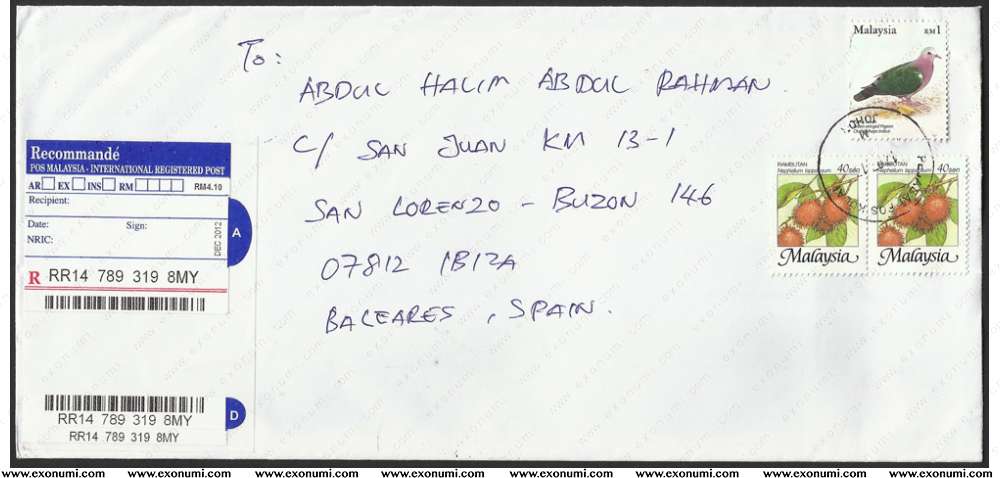 To:
ABDUL HALIM ABDUL RAHMAN.
C/ SAN JUAN KM 13-1
SAN LORENZO - BUZON 146
07812 IBIZA
BALEARES, SPAIN.
Malaysia RM1
RAMBUTAN
Nephelium lappaceum
40 sen
Malaysia
RAMBUTAN
Nephelium lappaceum
40 sen
Malaysia
JOHOR
Recommandé
POS MALAYSIA - INTERNATIONAL REGISTERED POST
AR EX INS RM RM4.10
Recipient:
Date: Sign:
NRIC:
DEC 2012
A
R RR14 789 319 8MY
D
RR14 789 319 8MY
RR14 789 319 8MY
www.exonumi.com www.exonumi.com www.exonumi.com www.exonumi.com www.exonumi.com www.exonumi.com www.exonumi.com www.exonumi.com